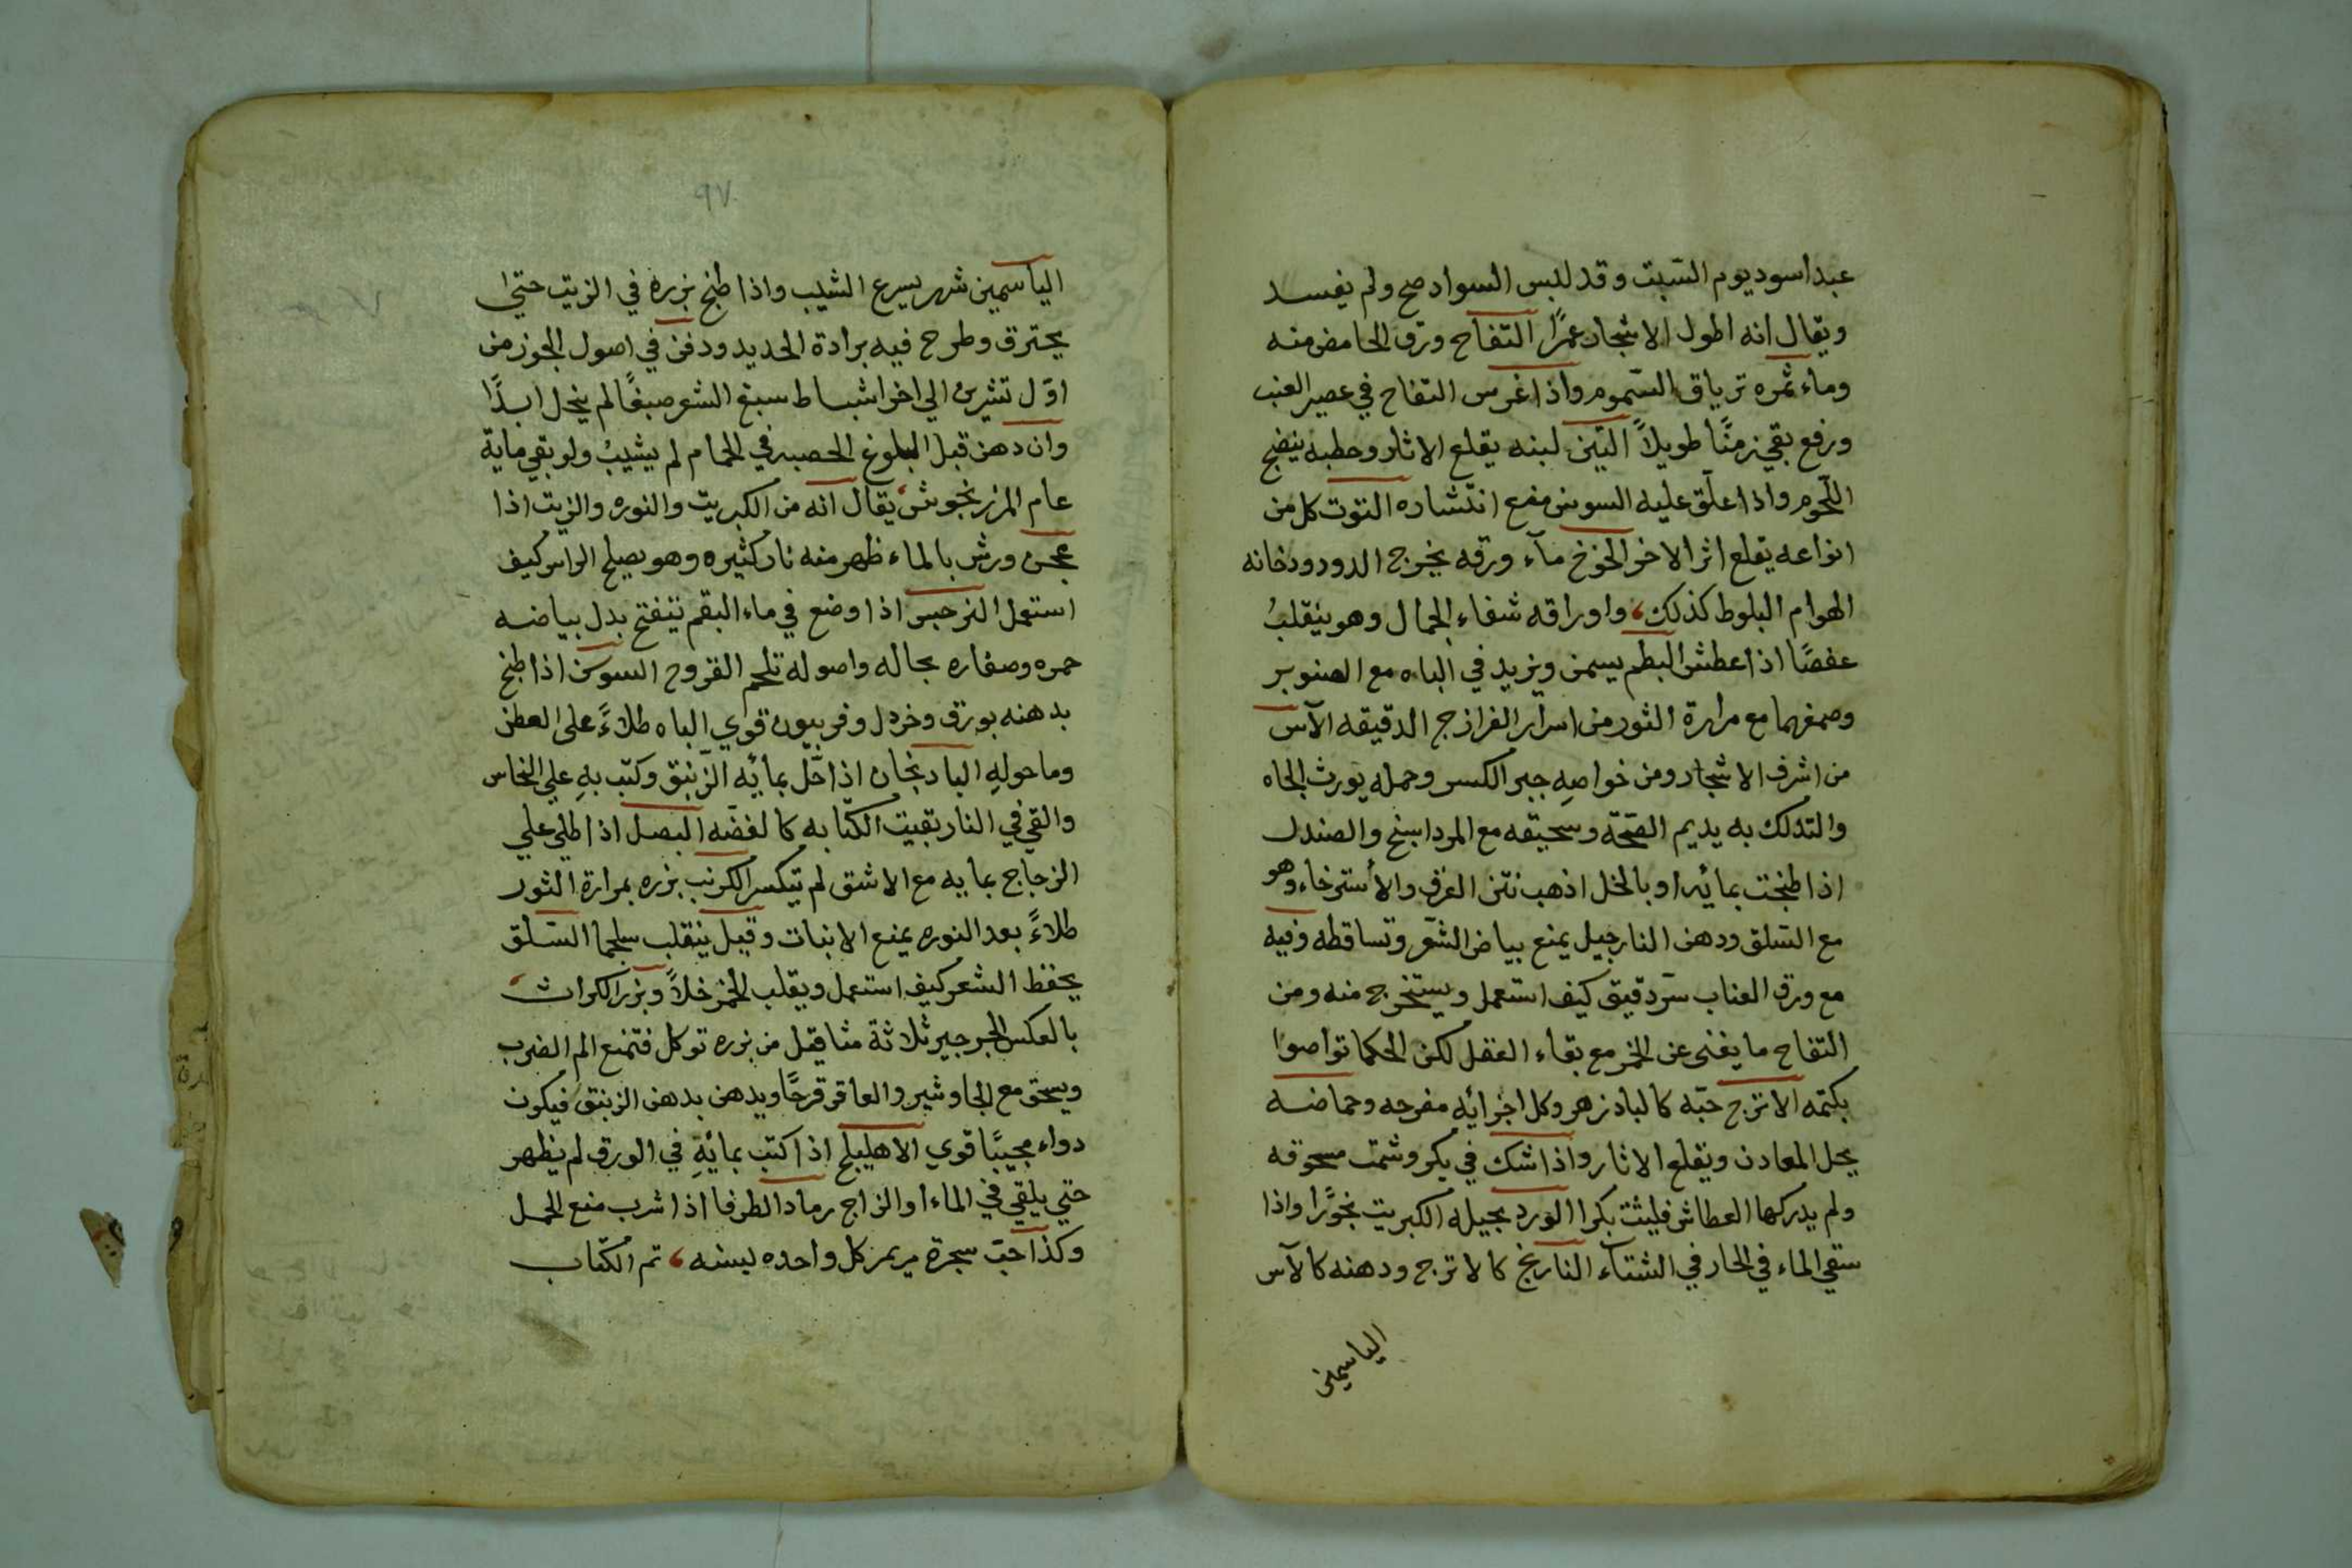 عبد اسود يوم السبت وقد لبس السواد صح ولم يفسد
ويقال انه اطول الاشجار عمرًا التفاح ورق الحامض منه
وماء ثمره ترياق السموم واذا غرس التفاح في عصير العنب
ورفع بقي زمنًا طويلاً التين لبنه يقلع الاثار وحطبه ينضج
اللحوم واذا علق عليه السوسن منع انتشاره التوت كل من
انواعه يقلع اثر الاخر الخوخ مآء ورقه يخرج الدود ودخانه
الهوام البلوط كذلك، واوراقه شفاء الجمال وهو ينقلبُ
عفصًا اذا عطش البطم يسمن ويزيد في الباه مع الصنوبر
وصمغهما مع مرارة الثور من اسرار الفرازج الدقيقه الآس
من اشرف الاشجار ومن خواصهِ جبر الكسر وحمله يورث الجاه
والتدلك به يديم الصّحّة وسحيقه مع المرداسنج والصندل
اذا طبخت بمائه او بالخل اذهب نتن العرق والأسترخاء وهو
مع السّلق ودهن النارجيل يمنع بياض الشعر وتساقطه وفيه
مع ورق العناب سرّ دقيق كيف استعمل ويستخرج منه ومن
التفاح ما يغنى عن الخمر مع بقاء العقل لكن الحكما تواصوا
بكتمه الاترج حبّه كالبادزهر وكل اجزائه مفرحه وحماضه
يحل المعادن ويقلع الاثار واذا شك في بكر وشمّت مسحوقه
ولم يدركها العطاش فليثت بكرا الورد بحيله الكبريت بخورًا واذا
سقي الماء في الحار في الشتآء النارنج كالاترج ودهنه كالآس
الياسمين
٩٧
الياسمين شمه يسرع الشيب واذا طبخ بزره في الزيت حتي
يحترق وطرح فيه برادة الحديد ودفن في اصول الجوز من
اوّل تشرين الي اخر اشباط سبغ الشعر صبغًا لم ينحل ابدًا
وان دهن قبل البلوغ الحصيه في الحمام لم يشيبُ ولو بقي ماية
عام المرزنجوش، يقال انه من الكبريت والنوره والزيت اذا
عجن ورش بالماء ظهر منه نار كثيره وهو يصلح الراس كيف
استعمل النرجس اذا وضع في ماء البقم يتفتح بدل بياضه
حمره وصفاره بحاله واصوله تلحم القروح السوسن اذا طبخ
بدهنه بورق وخردل وفربيون قوي الباه طلاءً على العطن
وما حولهِ البادنجان اذا حّل بمائه الزّيبق وكتب بهِ علي النحاس
والقي في النار بقيت الكتابه كالفضه البصل اذا طلي علي
الزجاج بمايه مع الاشق لم يتكسر الكرنب بزره بمرارة الثور
طلاءً بعد النوره يمنع الانبات وقيل ينقلب سلجما السّلق
يحفظ الشعر كيف استعمل ويقلب الخمر خلاً وبزر الكراث،
بالعكس الجرجير ثلاثة مثاقيل من بزره توكل فتمنع الم الضرب
ويسحق مع الجاوشير والعاقر قرحًا ويدهن بدهن الزنبق فيكون
دواء مجيبًا قوي الاهليلج اذا كتب بمائهِ في الورق لم يظهر
حتي يلقي في الماء او الزاج رماد الطرفا اذا شرب منع الحمل
وكذا حبّ سجرة مريم كل واحده لبسنه، تم الكتاب